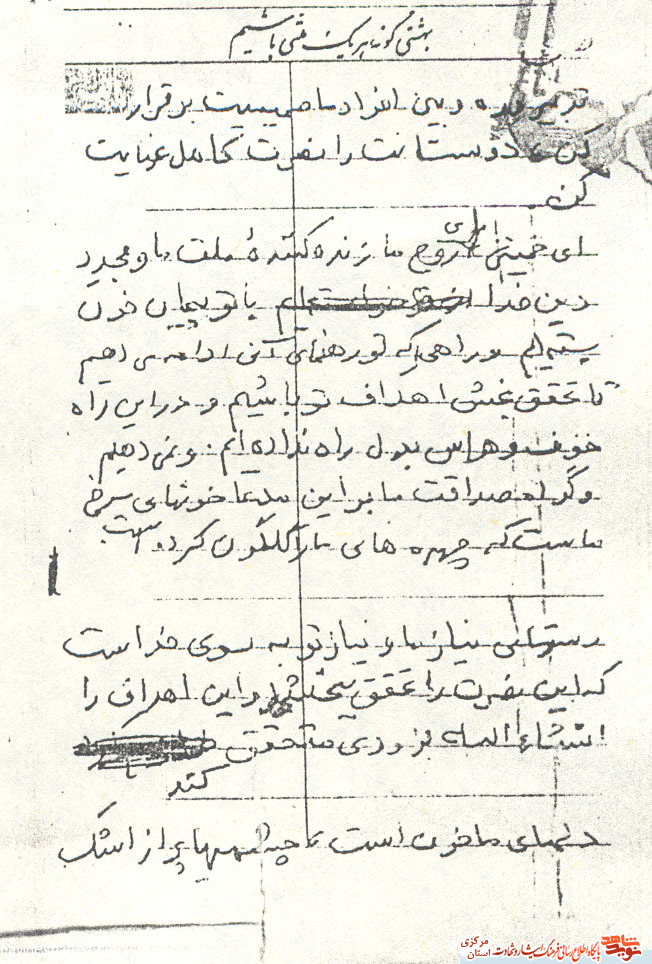 بهشتی گونه هر یک ملتی باشیم
و بین افراد ما صمیمیت برقرار
کن و دوستانت را نصرت کامل عنایت
کن.
ای خمینی ای روح ما زنده کننده ملت ما و مجدد
دین خدا با تو پیمان خون
بسته‌ایم و راهی که تو رهنمای آنی ادامه می دهیم
تا تحقق بخش اهداف تو باشیم و در این راه
خوف و هراس بدل راه نداده ایم و نمی دهیم
و گواه صداقت ما بر این مدعا خونهای سرخ
ماست که چهره های ما را گلگون کرده است
دستهای نیاز ما و نیاز تو به سوی خداست
که این نصرت را تحقق بخشد و این اهداف را
انشاء الله بزودی متحقق
کند
دلهای ما خون است و چشمها پر از اشک
نوید شاهد پایگاه اطلاع رسانی فرهنگ ایثار و شهادت استان مرکزی